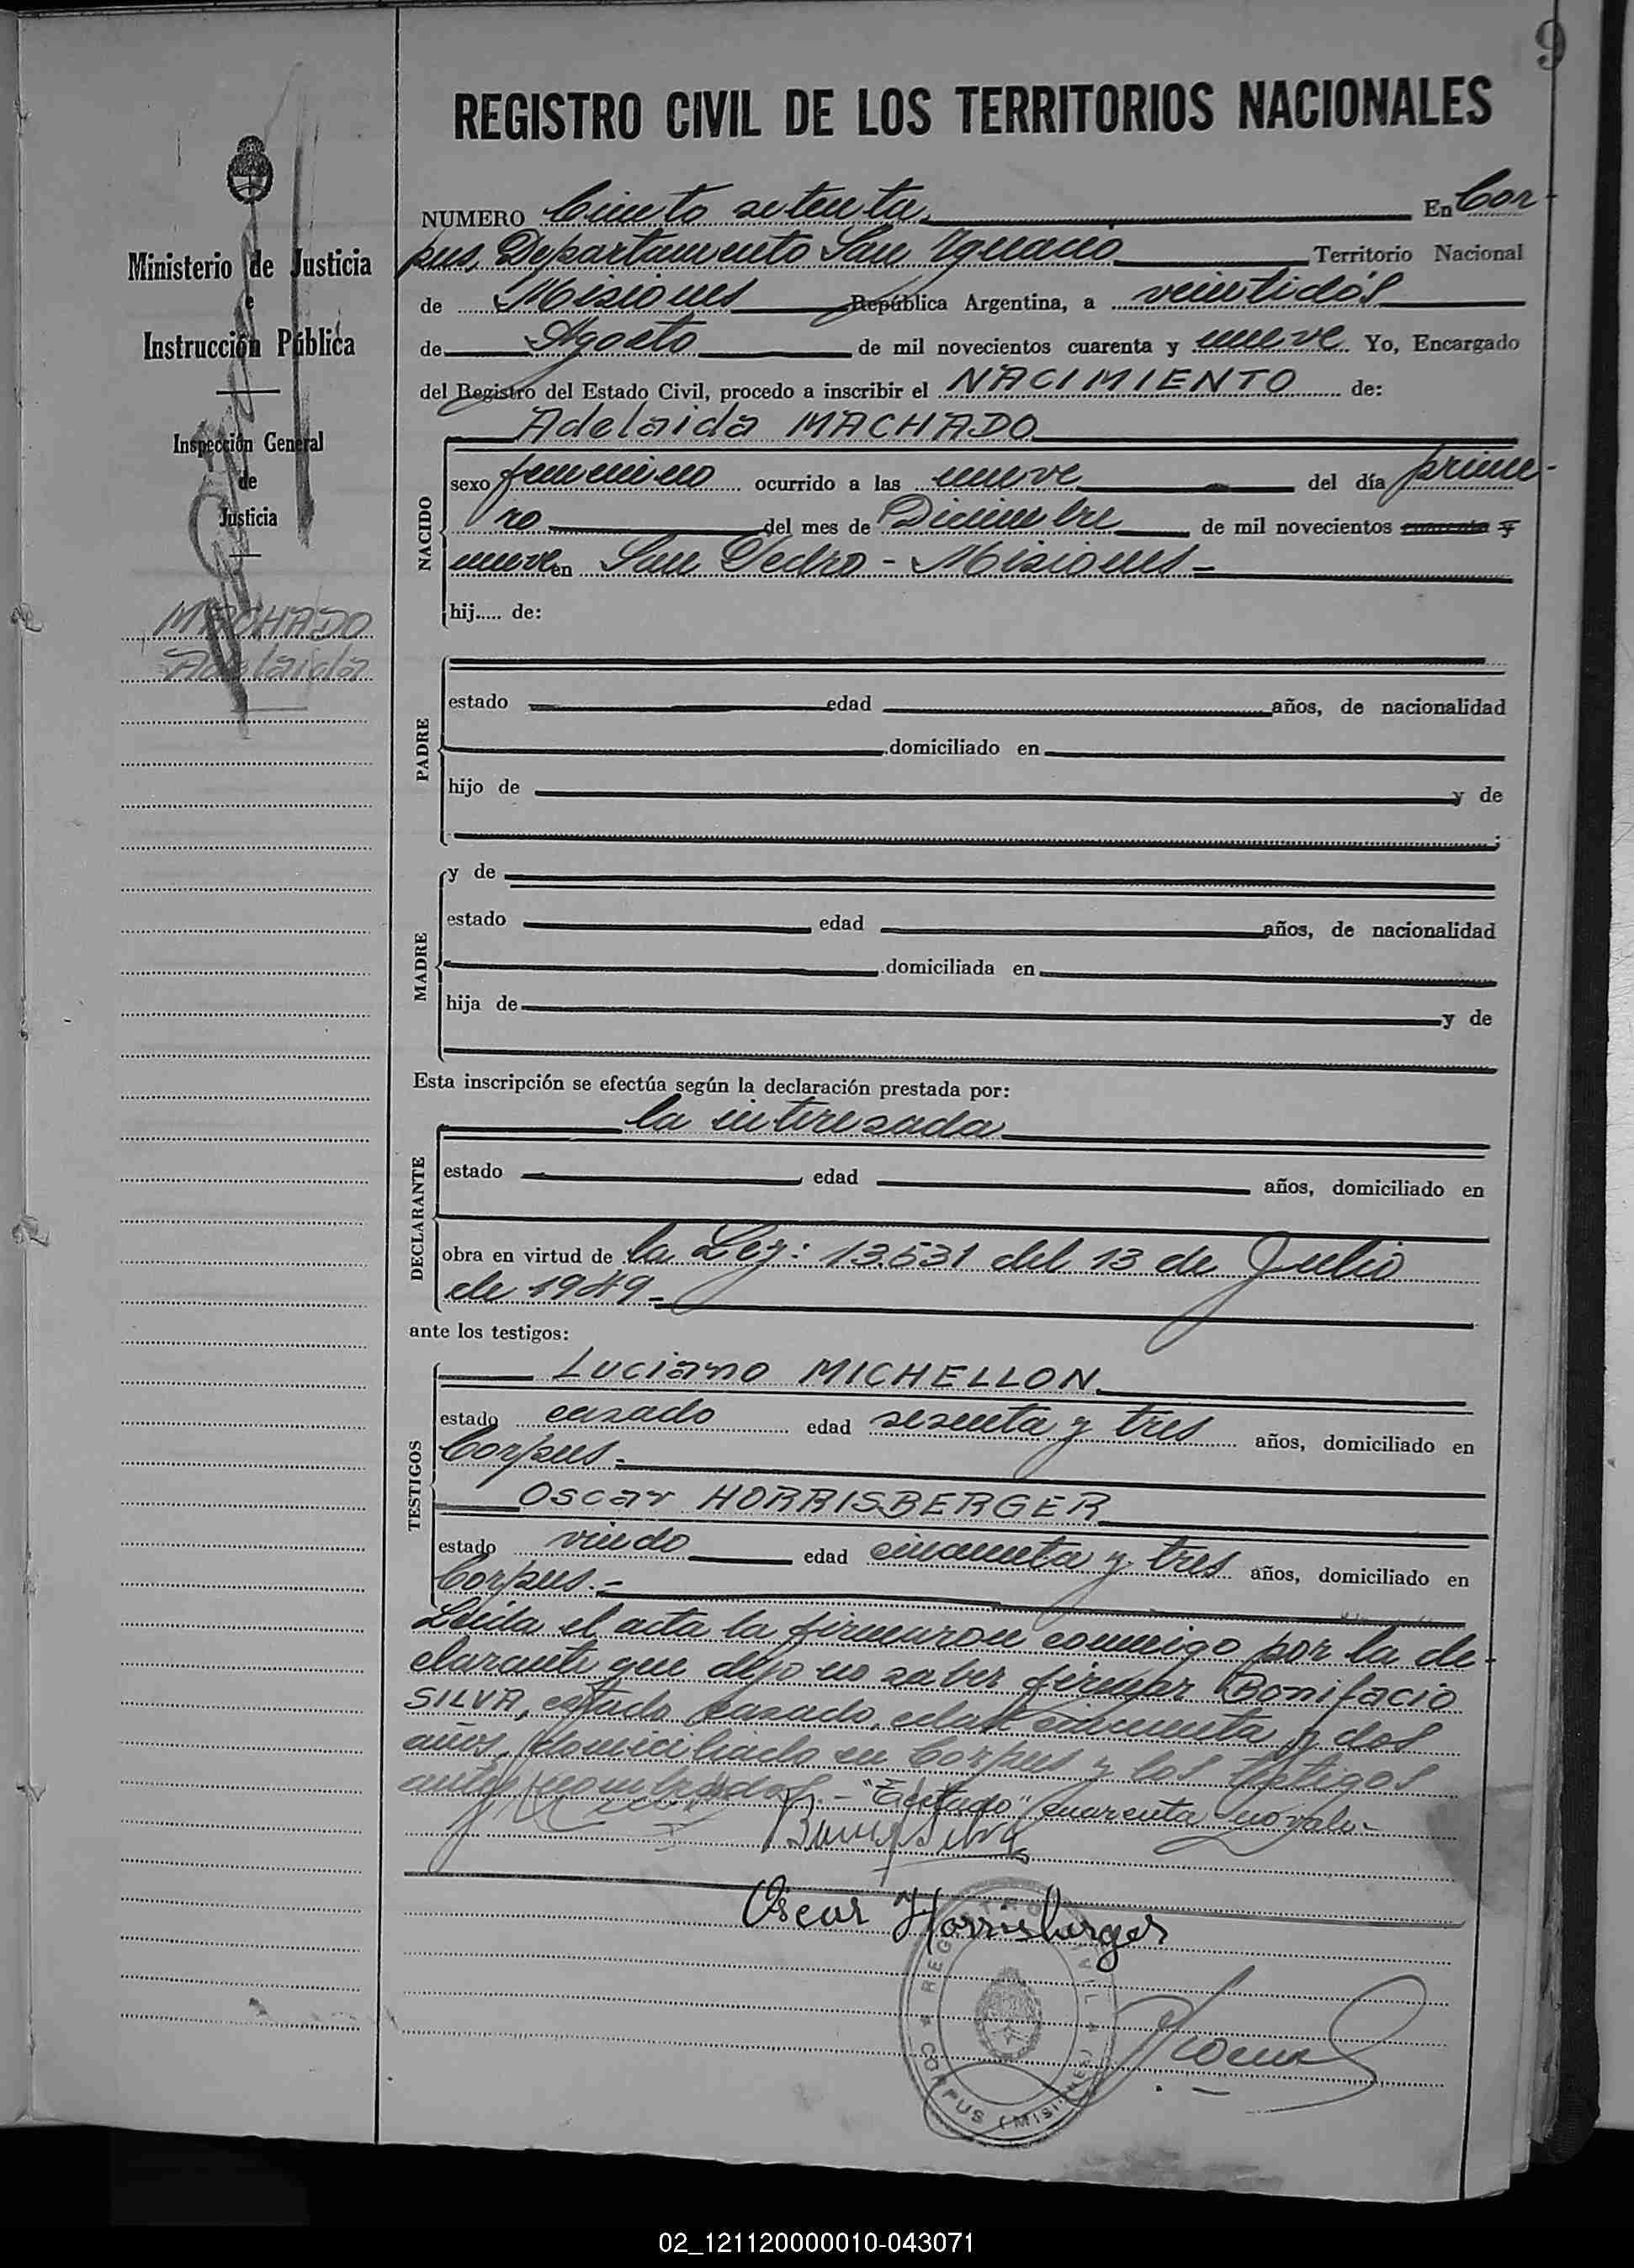 9
REGISTRO CIVIL DE LOS TERRITORIOS NACIONALES
Ministerio de Justicia
e
Instrucción Pública
Inspección General
de
Justicia
MACHADO
Adelaida
NUMERO Ciento setenta En Cor-
pus, Departamento San Ygnacio Territorio Nacional
de Misiones República Argentina, a veintidós
de Agosto de mil novecientos cuarenta y nueve Yo, Encargado
del Registro del Estado Civil, procedo a inscribir el NACIMIENTO de:
NACIDO
Adelaida MACHADO
sexo femenino ocurrido a las nueve del día prime-
ro del mes de Diciembre de mil novecientos cuarenta y
nueve en San Pedro - Misiones -
hij..... de:
PADRE
estado edad años, de nacionalidad
domiciliado en
hijo de y de
;
MADRE
y de
estado edad años, de nacionalidad
domiciliada en
hija de y de
Esta inscripción se efectúa según la declaración prestada por:
DECLARANTE
la interesada
estado edad años, domiciliado en
obra en virtud de la Ley: 13.531 del 13 de Julio
de 1949.-
ante los testigos:
TESTIGOS
Luciano MICHELLON
estado casado edad sesenta y tres años, domiciliado en
Corpus.-
Oscar HORRISBERGER
estado viudo edad cincuenta y tres años, domiciliado en
Corpus.-
Leída el acta la firmaron conmigo por la de-
clarante que dijo no saber firmar Bonifacio
SILVA, estado casado, edad cincuenta y dos
años, domiciliado en Corpus y los testigos
antes nombrados.- "Testado" cuarenta no vale.-
Silva
Oscar Horrisberger
REGISTRO CIVIL
CORPUS (MISIONES)
02_121120000010-043071